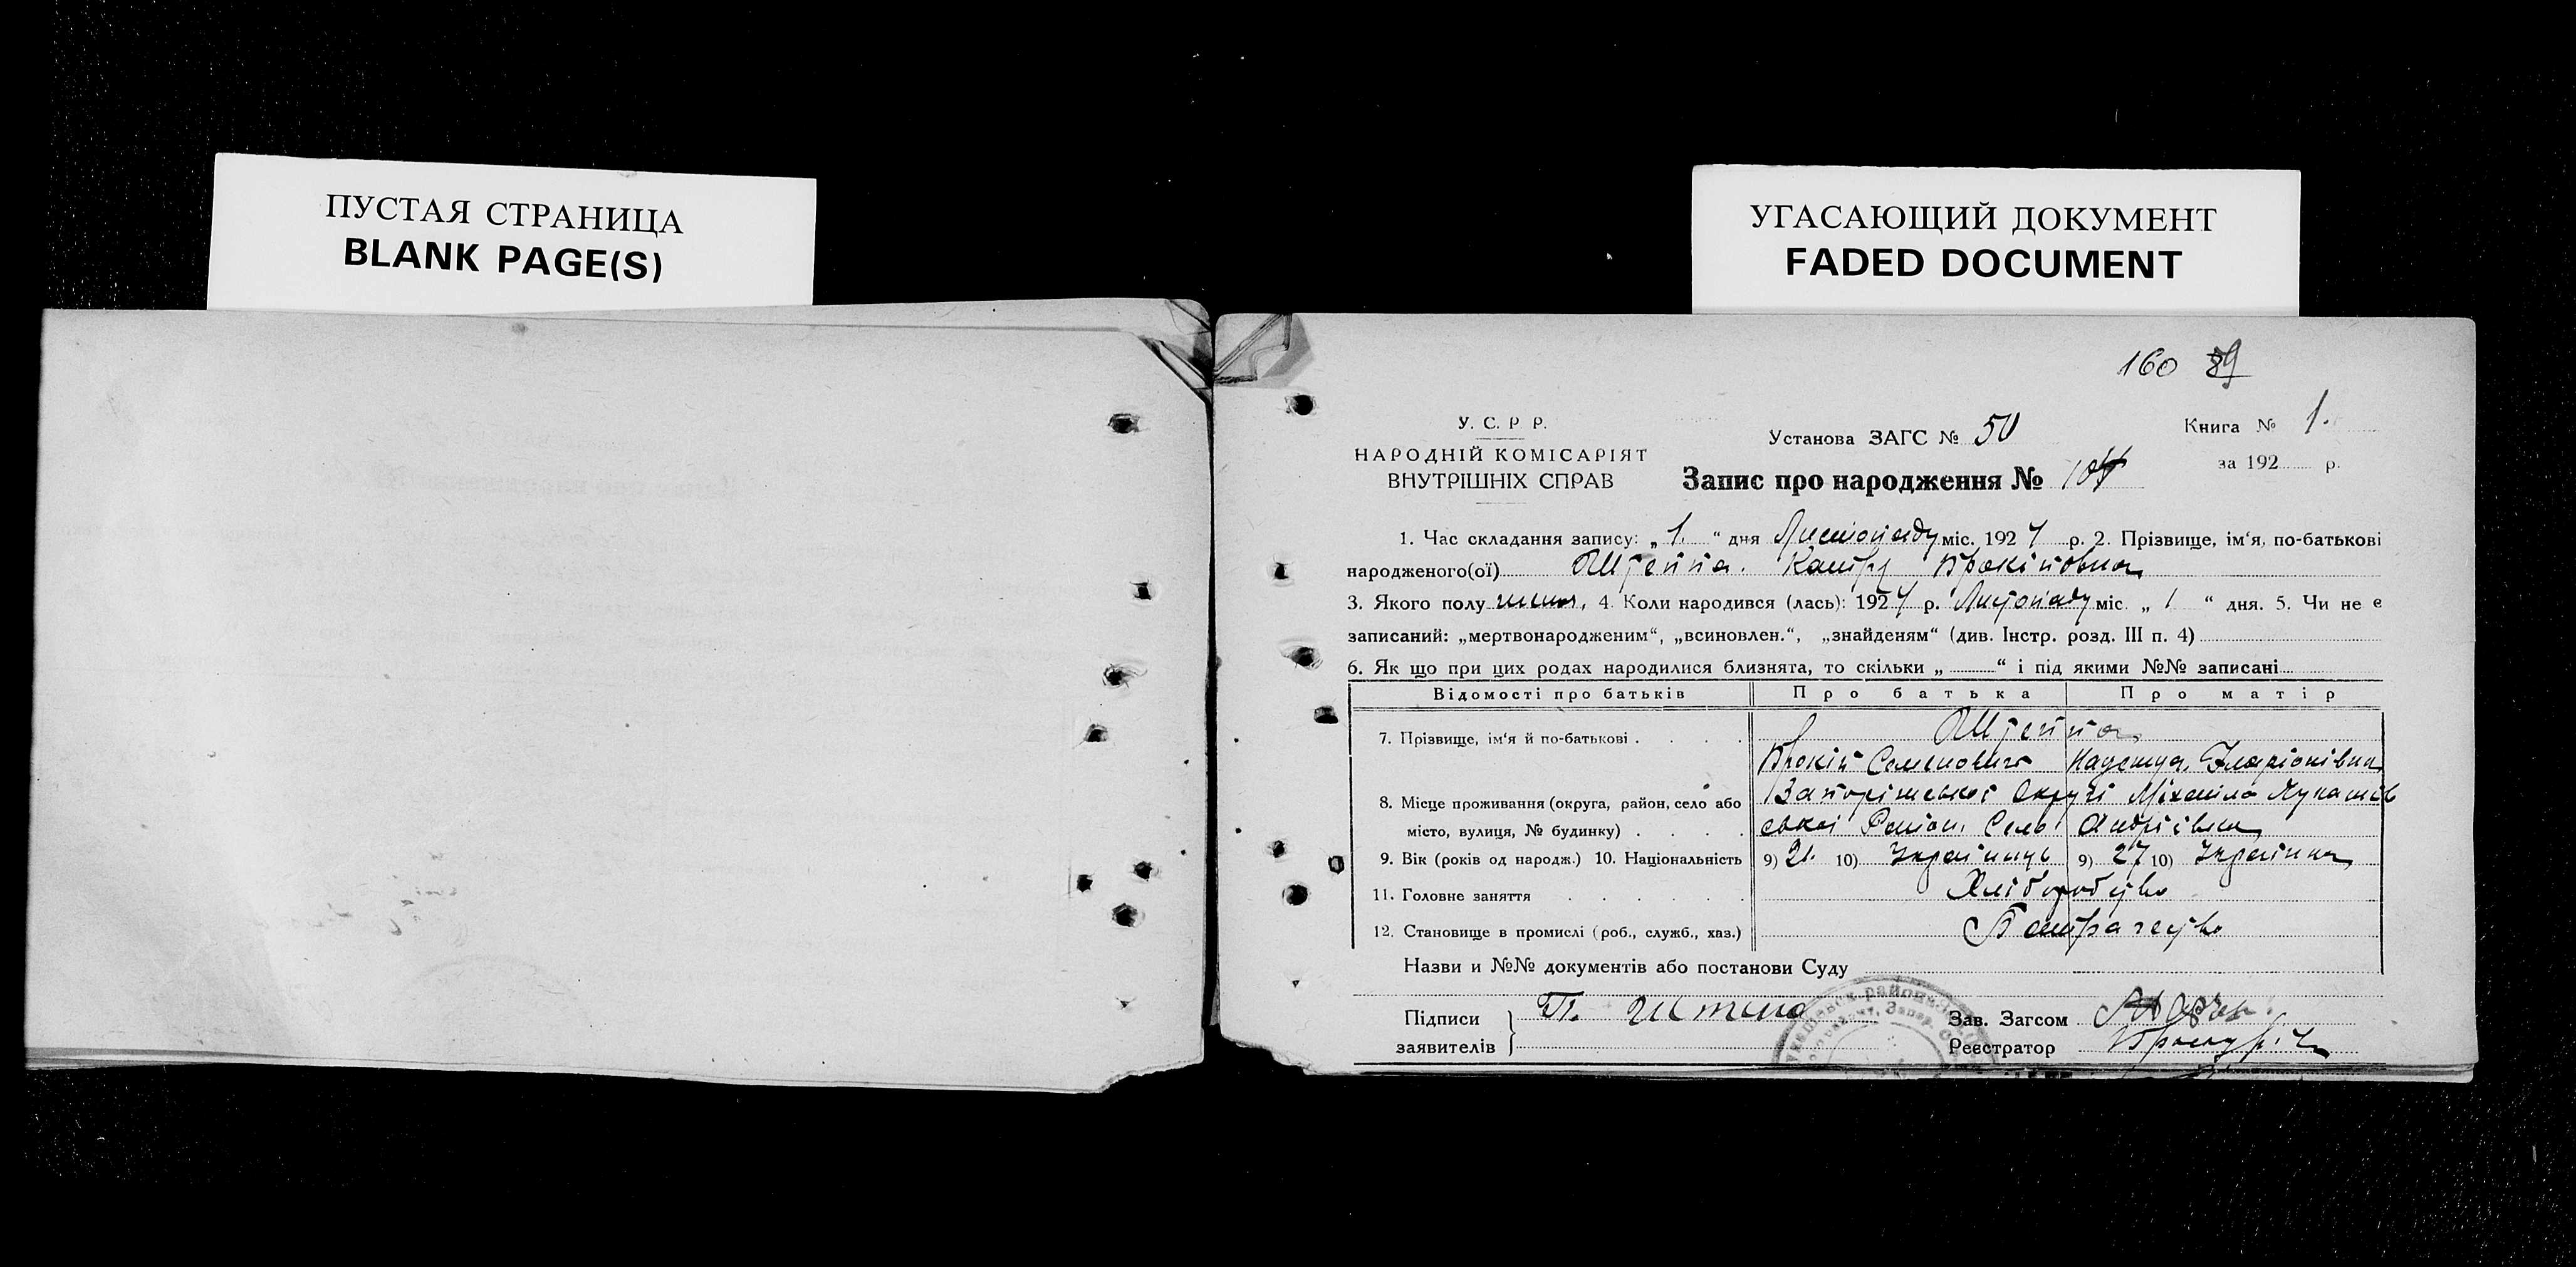 ПУСТАЯ СТРАНИЦА
BLANK PAGE(S)
УГАСАЮЩИЙ ДОКУМЕНТ
FADED DOCUMENT
160 89
У. С. Р Р.
НАРОДНІЙ КОМІСАРІЯТ
ВНУТРІШНІХ СПРАВ
Установа ЗАГС № 50
Книга № 1.
за 192 р.
Запис про народження №
1. Час складання запису: „ 1. “ дня Листопаду міс. 192 р. 2. Прізвище, ім‘я, по-батькові
народженого(ої) Штепа.
3. Якого полу 4. Коли народився (лась): 192 р. Листопаду міс. „ 1 “ дня. 5. Чи не є
записаний: „мертвонародженим“, „всиновлен.“, „знайденям“ (див. Інстр. розд. III п. 4)
6. Як що при цих родах народилися близнята, то скільки „ “ і під якими №№ записані
Відомості про батьків Про батька Про матір
7. Прізвище, ім‘я й по-батькові Штепа
Прокіп Семенович Надежда Іларіонівна
8. Місце проживання (округа, район, село або Запорізької Округі Міхайло Лукашів
місто, вулиця, № будинку) ської Район. Село Андріївка
9. Вік (років од народж.) 10. Національність 9) 21. 10) Українець 9) 27 10) Українка
11. Головне заняття Хліборобство
12. Становище в промислі (роб., служб., хаз.) Батрацтво
Назви и №№ документів або постанови Суду
Підписи заявителів П. Штепа
Зав. Загсом
Реєстратор